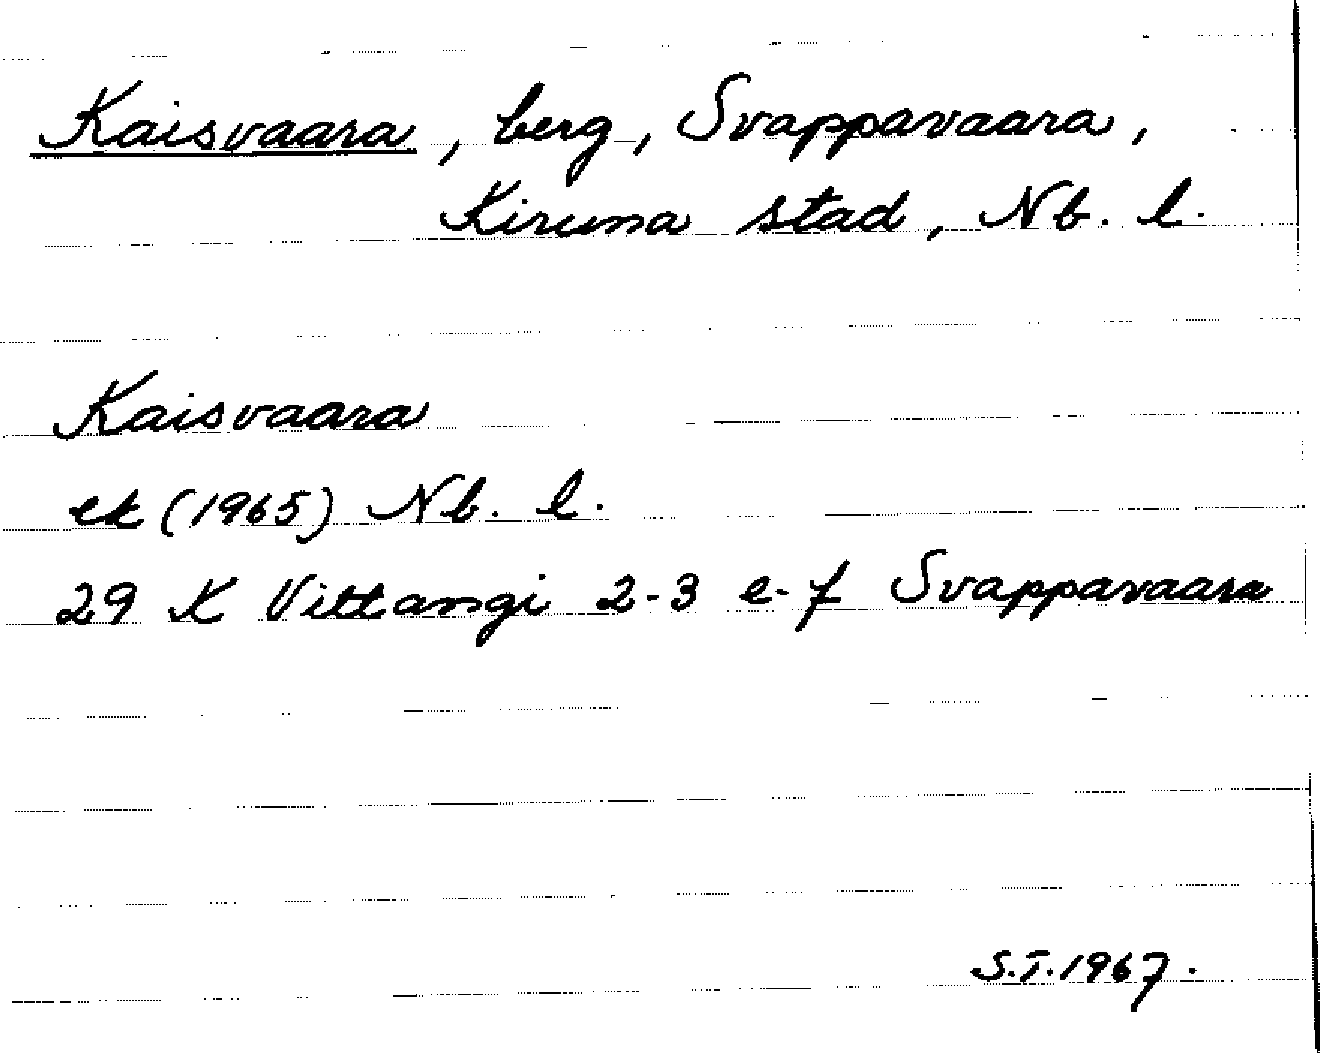 Kaisvaara, berg, Svappavaara,
Kiruna stad, Nb. l.
Kaisvaara
ek (1965) Nb. l.
29 K Vittangi 2-3 e-f Svappavaara
S.T. 1967.